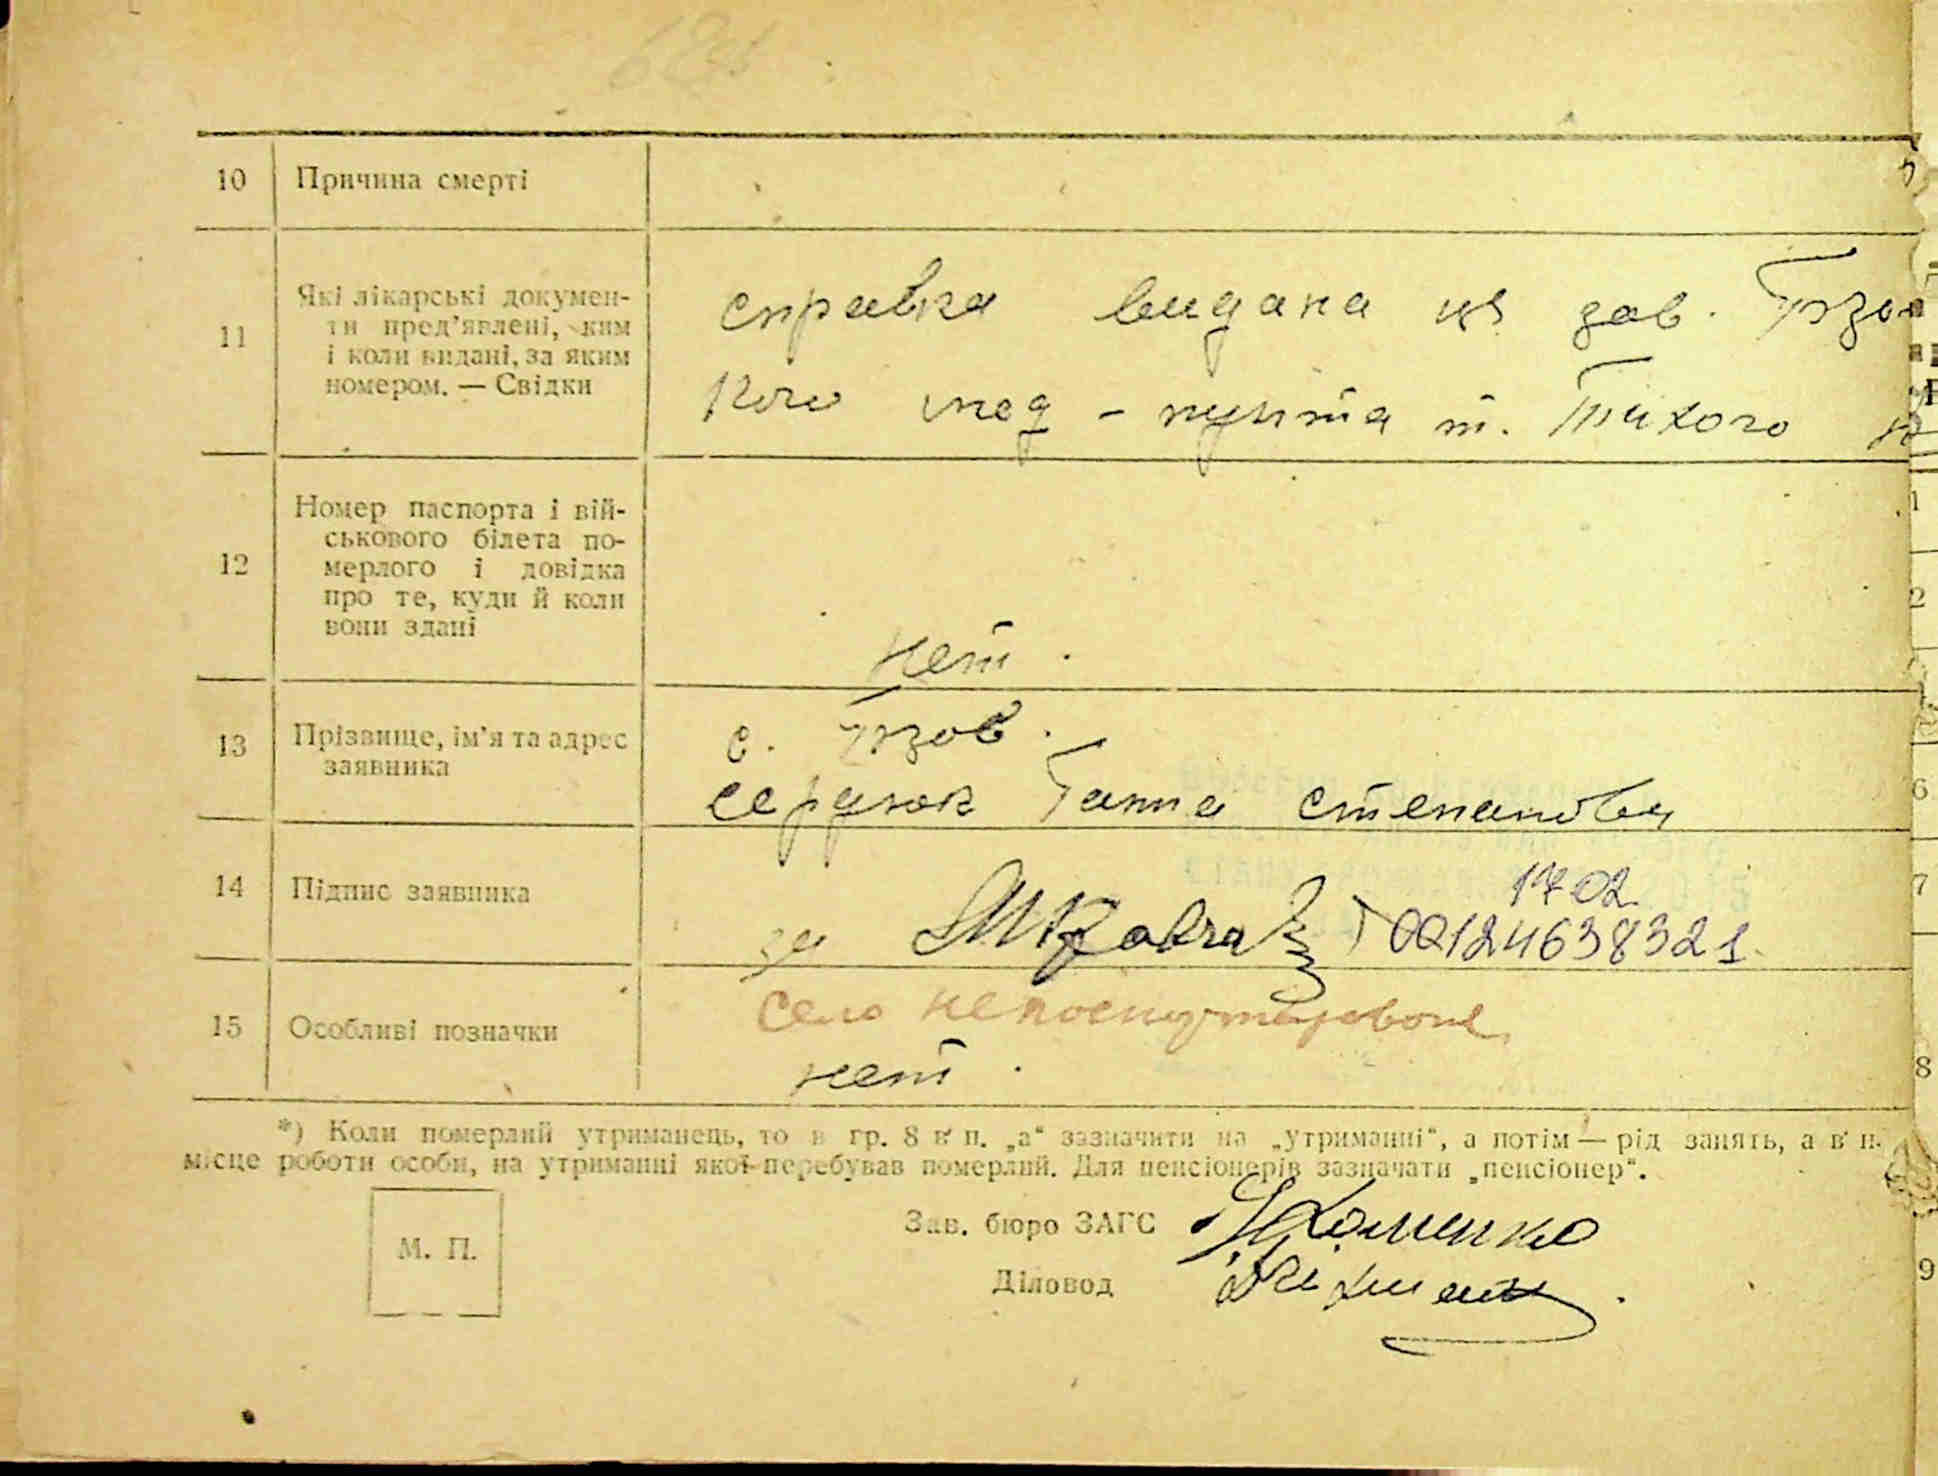 10 Причина смерті
11 Які лікарські докумен-
ти пред'явлені, ким
і коли видані, за яким
номером. — Свідки
справка видана
зав.
мед - пункта т. Тихого
12 Номер паспорта і вій-
ськового білета по-
мерлого і довідка
про те, куди й коли
вони здані
нет.
13 Прізвище, ім'я та адрес
заявника
с.
Сердюк Ганна Степановна
14 Підпис заявника
за
1702
00124638321
15 Особливі позначки
село
нет.
*) Коли померлий утриманець, то в гр. 8 в п. „а“ зазначити на „утриманні“, а потім — рід занять, а в п.
місце роботи особи, на утриманні якої перебував померлий. Для пенсіонерів зазначати „пенсіонер“.
М. П.
Зав. бюро ЗАГС
Діловод